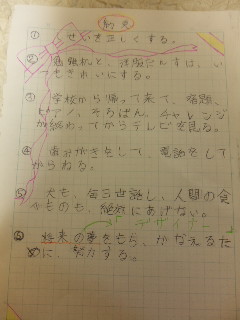 約束
① せいざ正しくする。
② 勉強机と、洋服だんすは、い
つもきれいにする。
③ 学校から帰って来て、宿題、
ピアノ、そろばん、チャレンジ
が終わってからテレビを見る。
④ 歯みがきをして、電話をして
からねる。
⑤ 犬も、毎日世話し、人間の食
べものも、絶対にあげない。
デザイナー
⑥ 将来の夢をもち、かなえるた
めに、努力する。